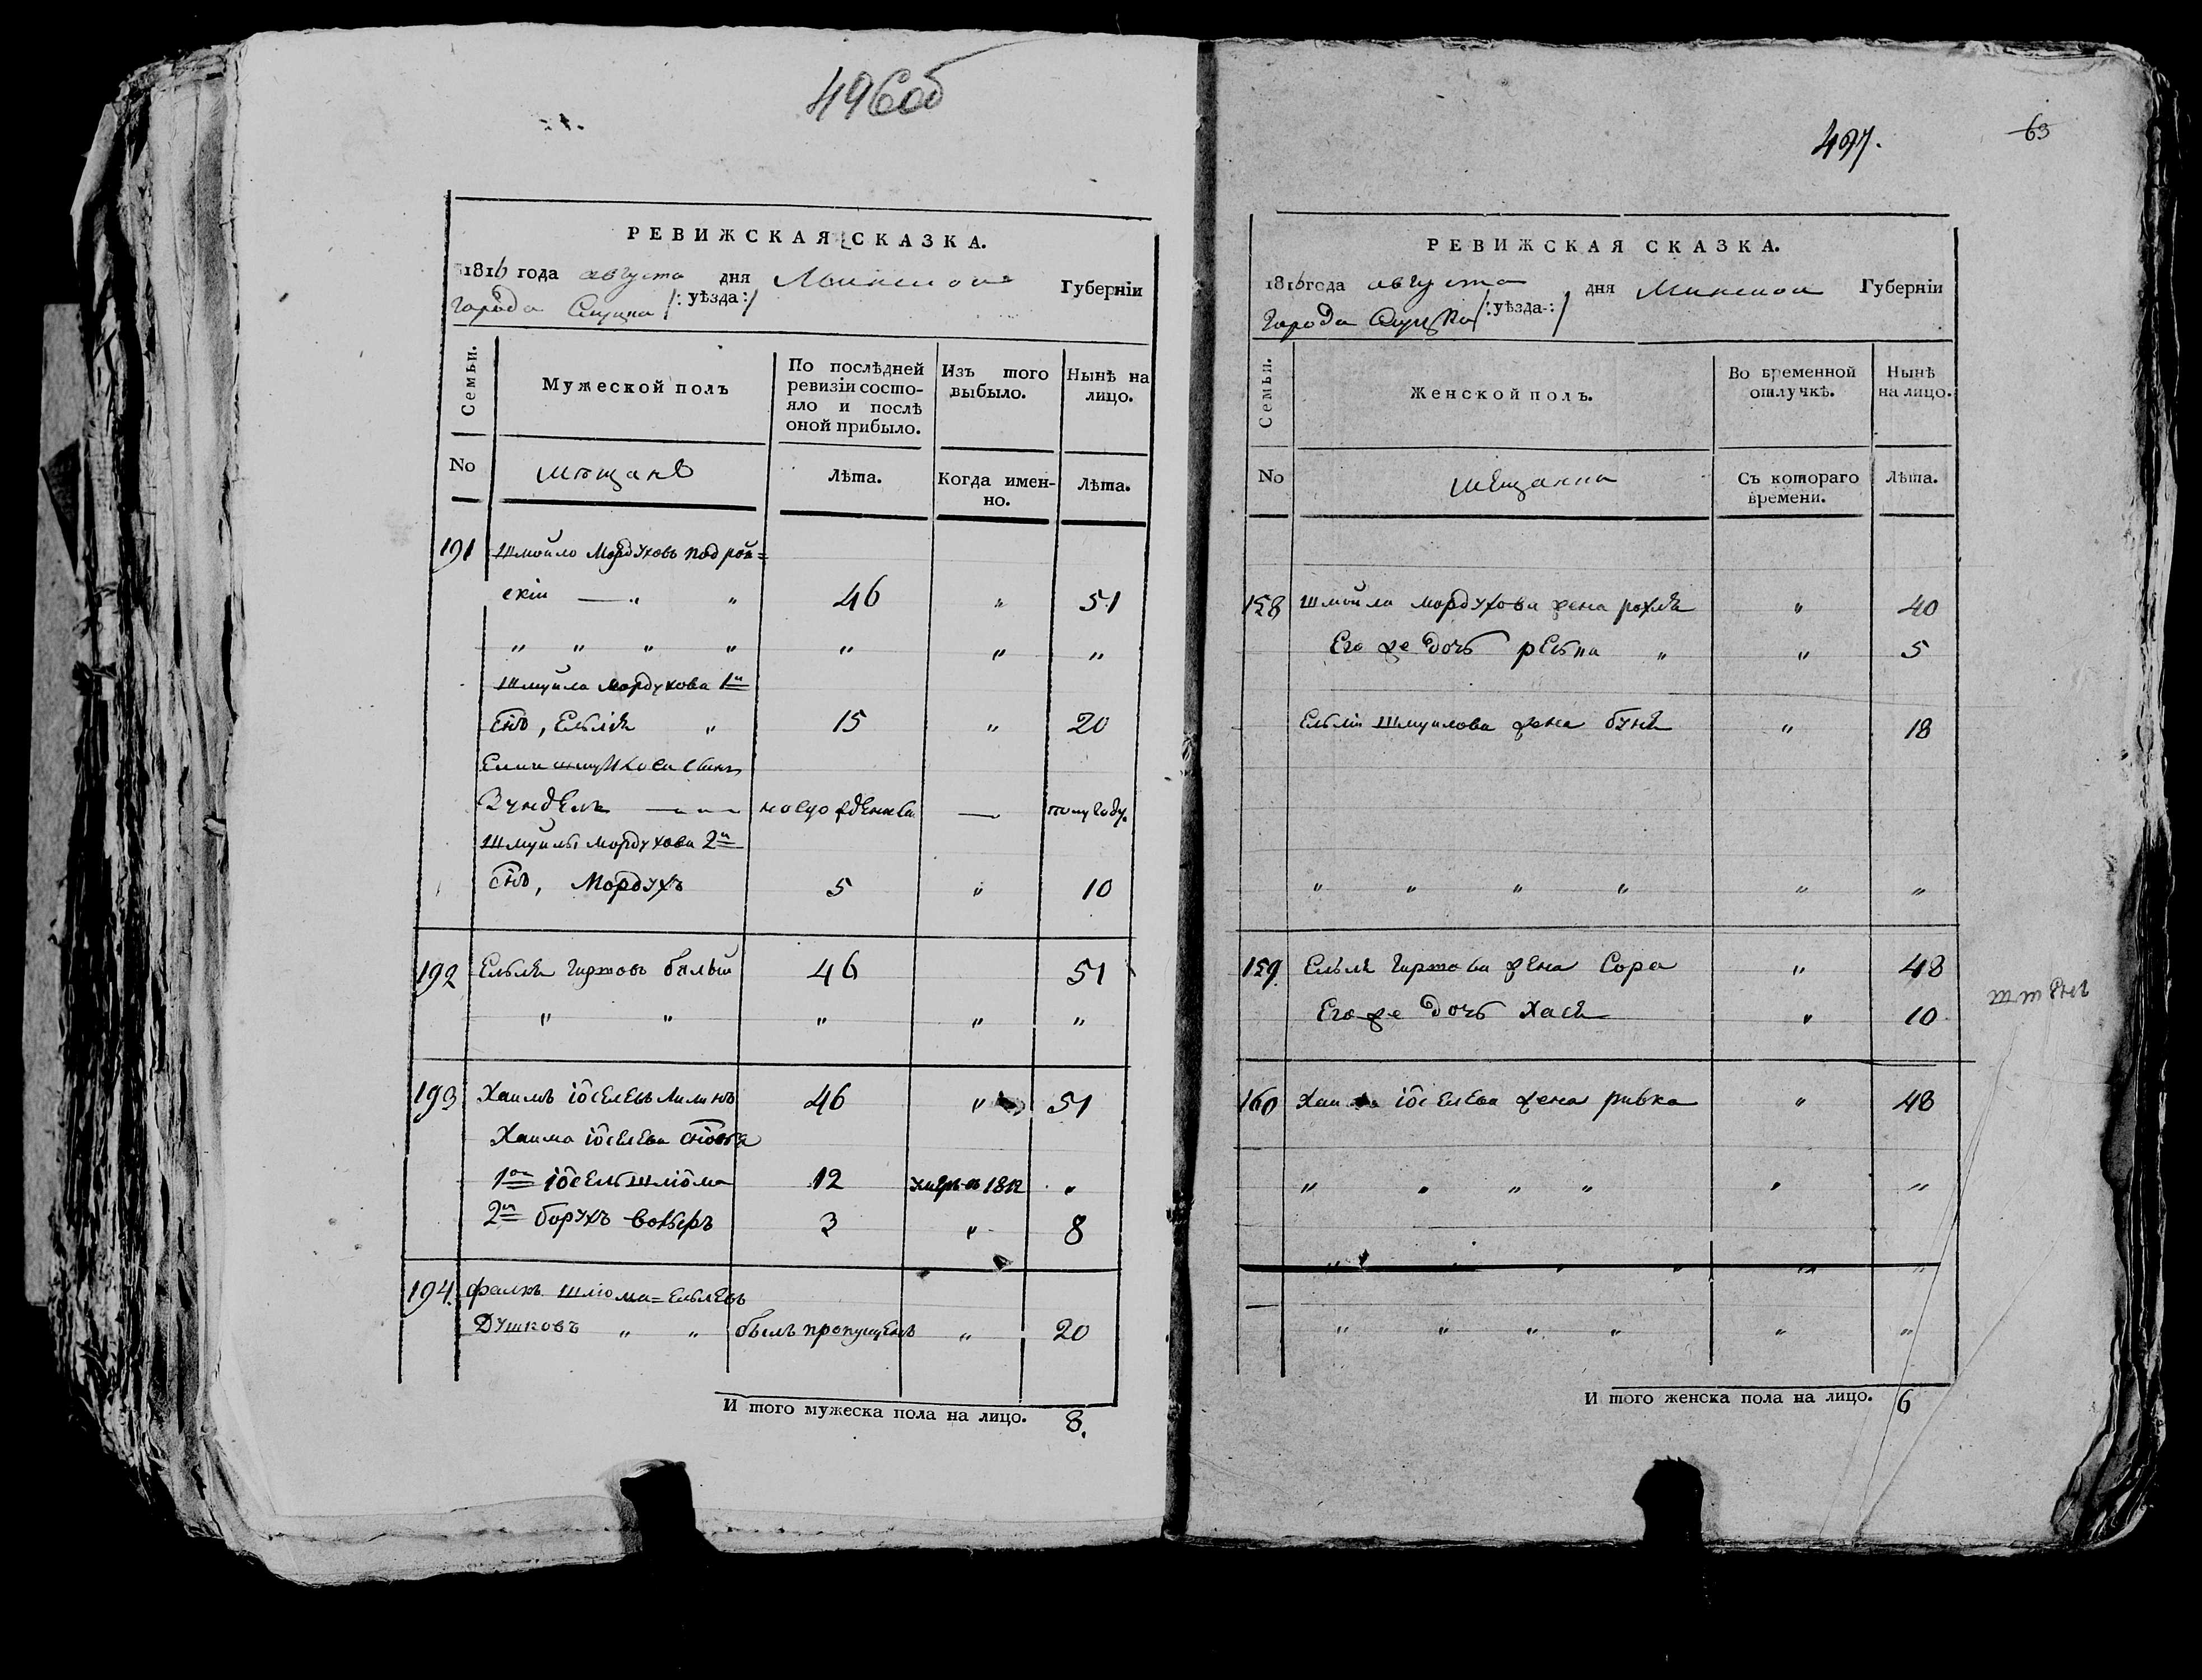 496об
РЕВИЖСКАЯ СКАЗКА.
1816 года августа дня Минской Губерніи
города Слуцка /: уѣзда :/
Семьи.
Мужеской полъ
По послѣдней ревизіи состо-
яло и послѣ оной прибыло.
Изъ того выбыло.
Нынѣ на лицо.
No
мѣщанѣ
Лѣта.
Когда имен-
но.
Лѣта.
191 Шмойло Мордуховъ Подрой=
скіи — " " 46 " 51
" " " " " " "
Шмуила Мордухова 1й
снъ, Ельля " 15 " 20
Зундель — новорожденны — полугоду.
Шмуилы Мордухова 2й
снъ, Мордухъ 5 " 10
192 Ельля Гиртовъ балый 46 51
" " " " "
193 Хаимъ іоселевъ Лилинъ 46 " 51
Хаима іоселева сновья
1й іосель шліома 12 умеръ въ 1812 "
2й борухъ вольфъ 3 " 8
194. фалкъ шліома=Ельлевъ
Душковъ " " былъ пропущенъ " 20
И того мужеска пола на лицо. 8.
497.
63
РЕВИЖСКАЯ СКАЗКА.
1816 года августа дня Минской Губерніи
города Слуцка /: уѣзда :/
Семьи.
Женской полъ.
Во временной отлучкѣ.
Нынѣ на лицо.
No
мѣщанки
Съ котораго времени.
Лѣта.
158 Шмойла мордухова жена рохля " 40
Его же дочь рейна " " 5
Ельли Шмуилова жена буня " 18
" " " " " "
159 Ельля Гиртова жена Сора " 48
Его же дочь Хася " 10
160 Хаима іоселева жена ривка " 48
" " " " " "
" " " " " "
" " " " " "
И того женска пола на лицо. 6